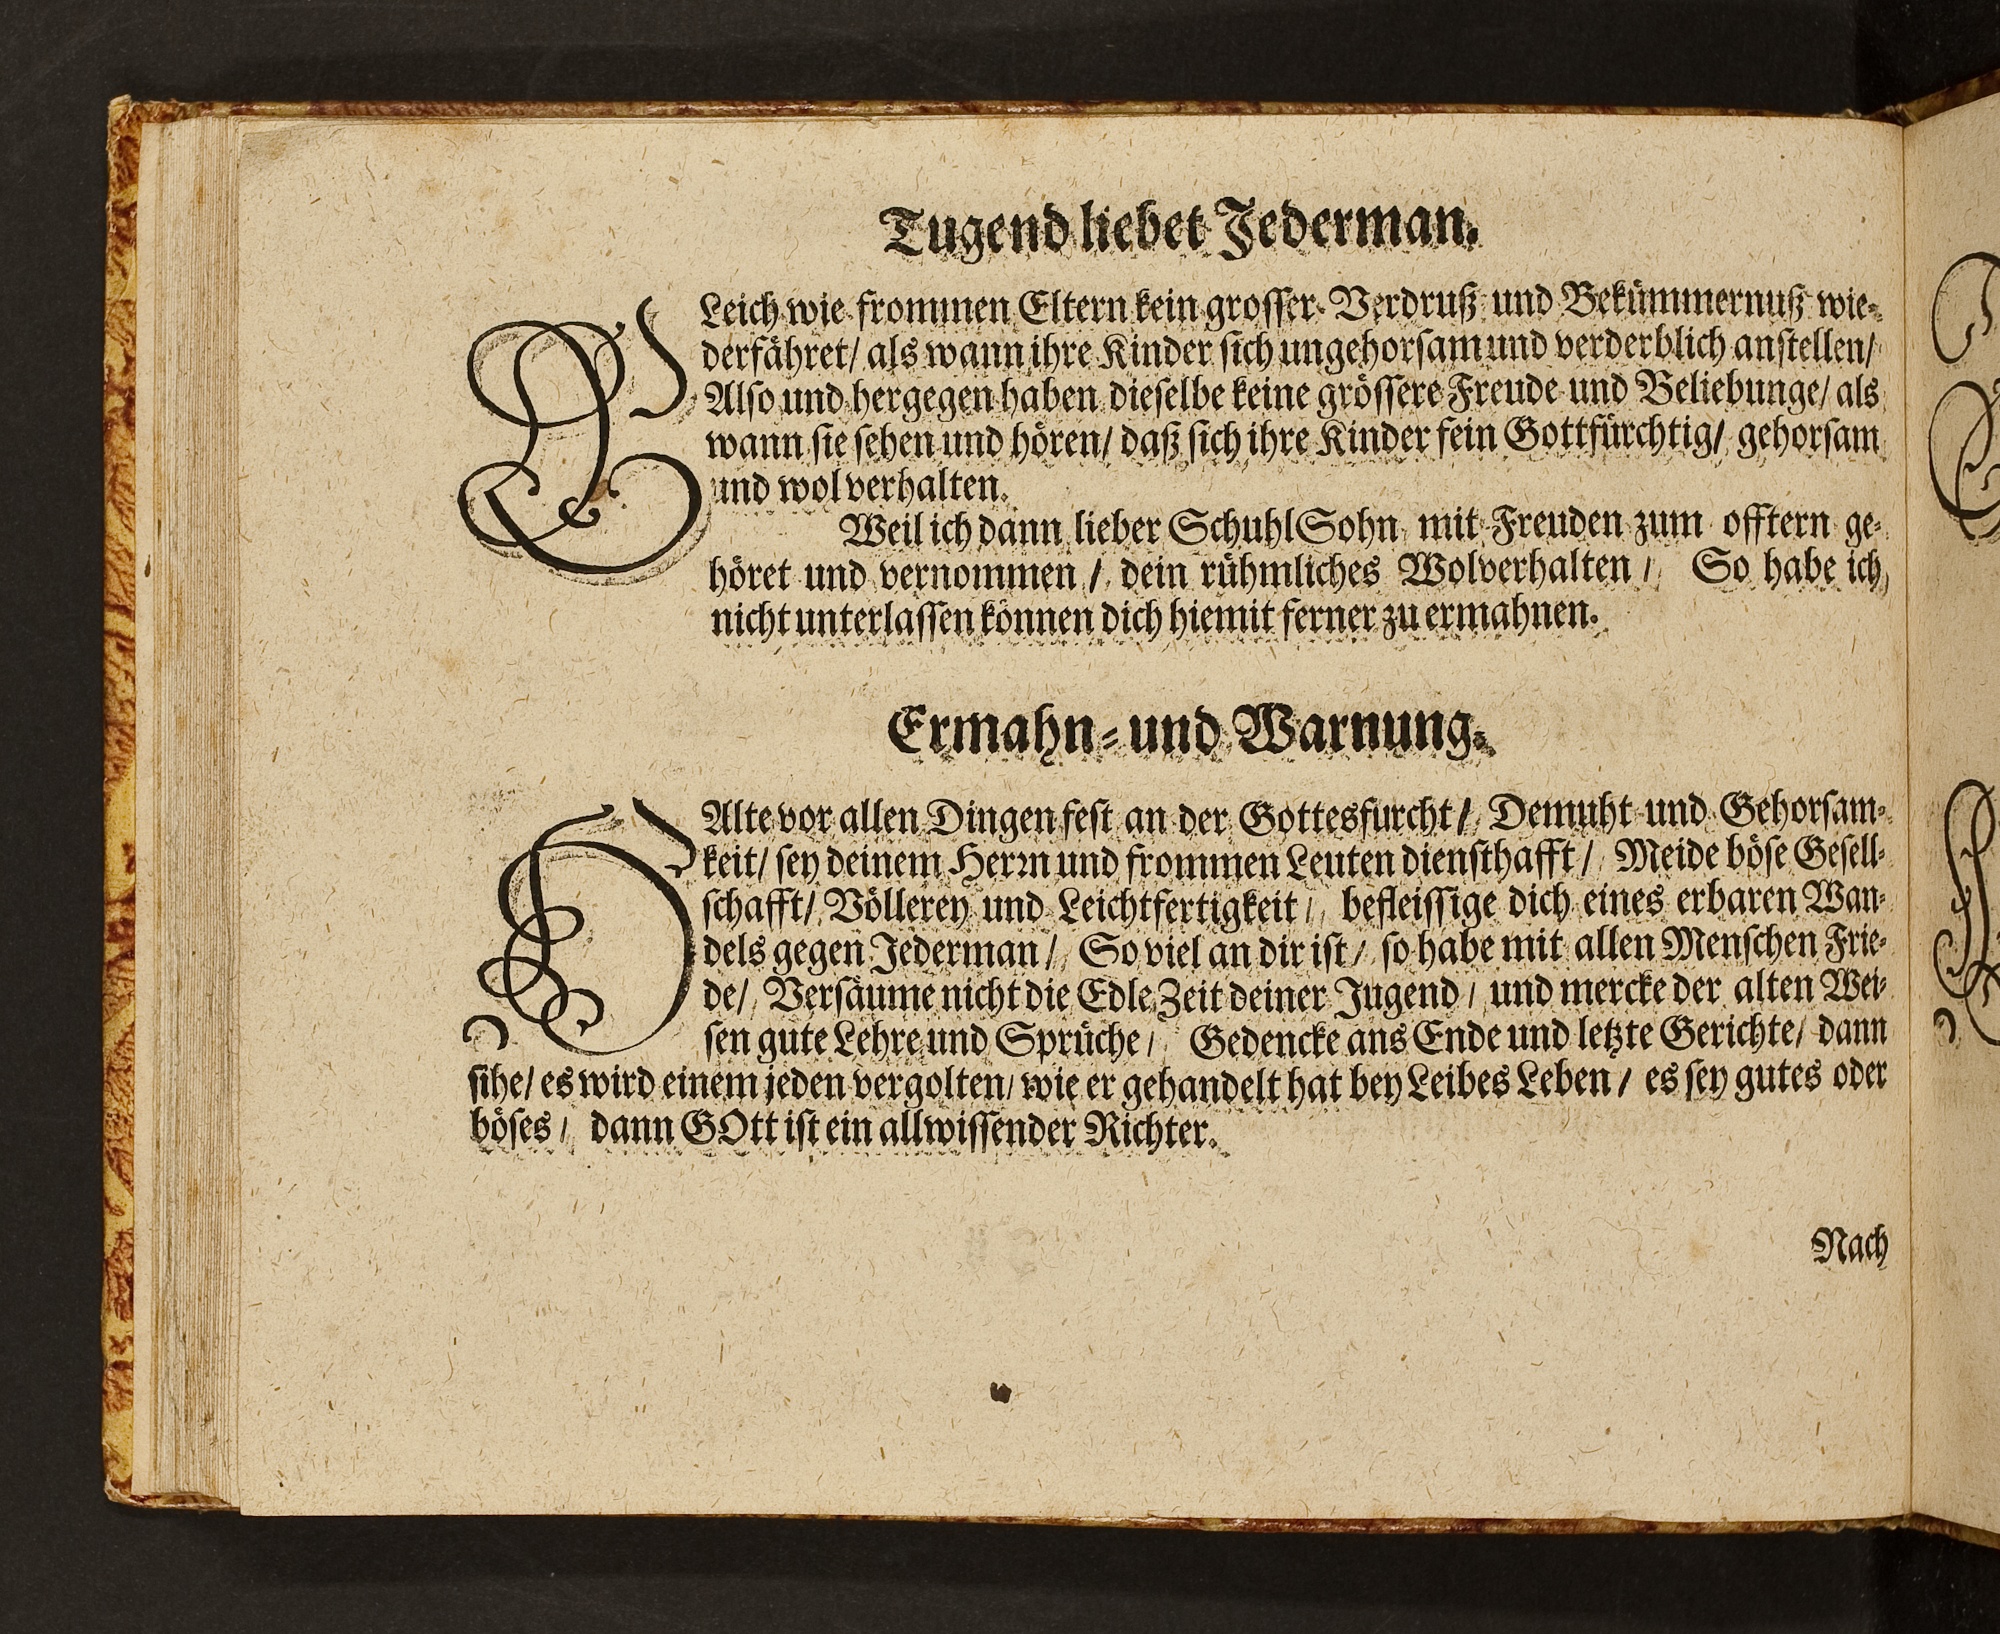 Tugend liebet Jederman.
GLeich wie frommen Eltern kein grosser Verdruß und Bekümmernuß wie-
derfähret/ als wann ihre Kinder sich ungehorsam und verderblich anstellen/
Also und hergegen haben dieselbe keine grössere Freude und Beliebunge/ als
wann sie sehen und hören/ daß sich ihre Kinder fein Gottfürchtig/ gehorsam
und wol verhalten.
Weil ich dann lieber SchuhlSohn mit Freuden zum offtern ge-
höret und vernommen / dein rühmliches Wolverhalten / So habe ich
nicht unterlassen können dich hiemit ferner zu ermahnen.
Ermahn- und Warnung.
HAlte vor allen Dingen fest an der Gottesfurcht / Demuht und Gehorsam-
keit/ sey deinem Herrn und frommen Leuten diensthafft / Meide böse Gesell-
schafft/ Völlerey und Leichtfertigkeit / befleissige dich eines erbaren Wan-
dels gegen Jederman / So viel an dir ist / so habe mit allen Menschen Frie-
de/ Versäume nicht die Edle Zeit deiner Jugend / und mercke der alten Wei-
sen gute Lehre und Sprüche / Gedencke ans Ende und letzte Gerichte/ dann
sihe/ es wird einem jeden vergolten/ wie er gehandelt hat bey Leibes Leben / es sey gutes oder
böses / dann GOtt ist ein allwissender Richter.
Nach